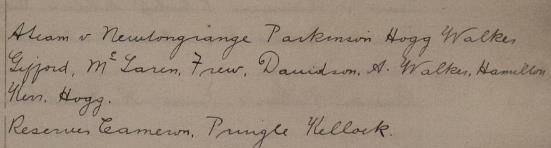 Ateam v Newtongrange Parkinson Hogg Walker
Gifford, McLaren, Frew, Davidson, A. Walker, Hamilton
Kerr, Hogg.
Reserves Cameron, Pringle Kellock.